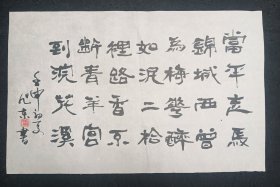 當年走馬
錦城西曾
為梅花醉
如泥二拾
裡路香不
斷青羊宮
到浣花溪
壬申
書